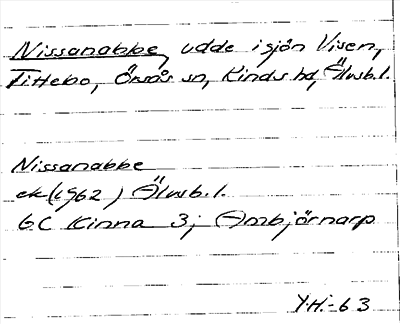 Nissanabbe, udde i sjön Visen,
Tittebo, Örsås sn, Kinds hd, Älvsb.l.
Nissanabbe
ek (1962) Älvsb.l.
6C Kinna 3; Ambjörnarp
Y.H.-63